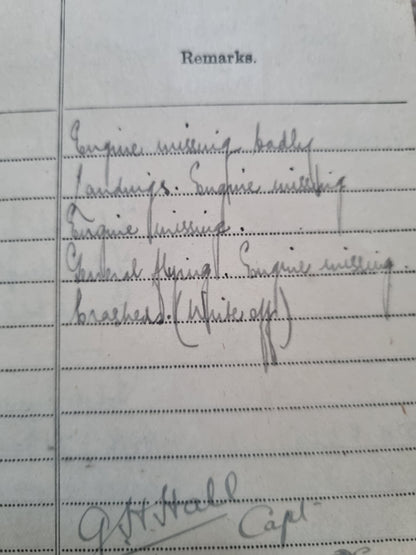 Remarks.
Engine missing badly
Landings. Engine missing
Engine missing.
General flying. Engine missing.
Crashed. (Write off)
G.H. Hall
Capt